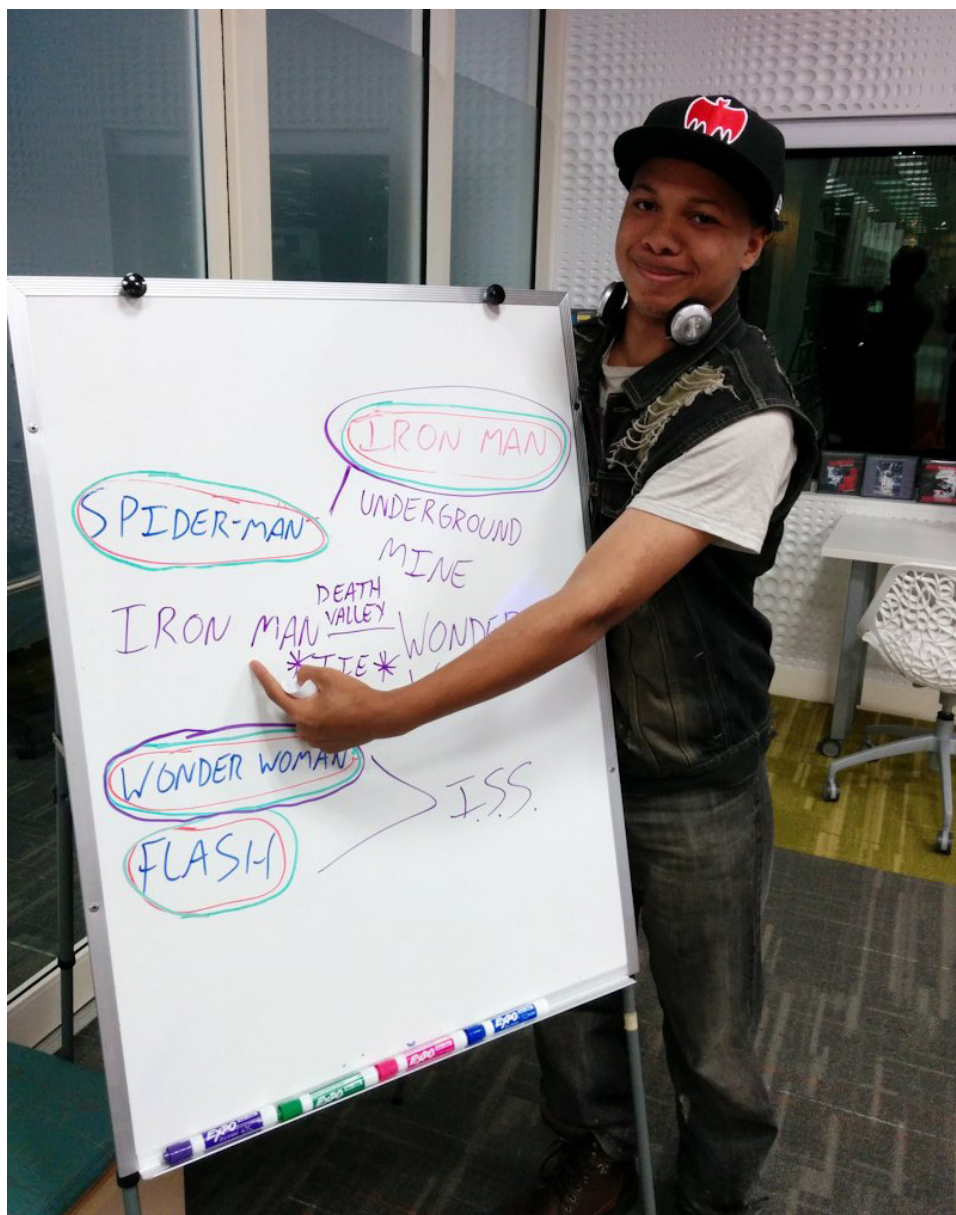 IRON MAN
SPIDER-MAN
UNDERGROUND
MINE
DEATH
VALLEY
IRON MAN
*TIE*
WONDER WOMAN
FLASH
I.S.S.
EXPO
EXPO
EXPO
EXPO